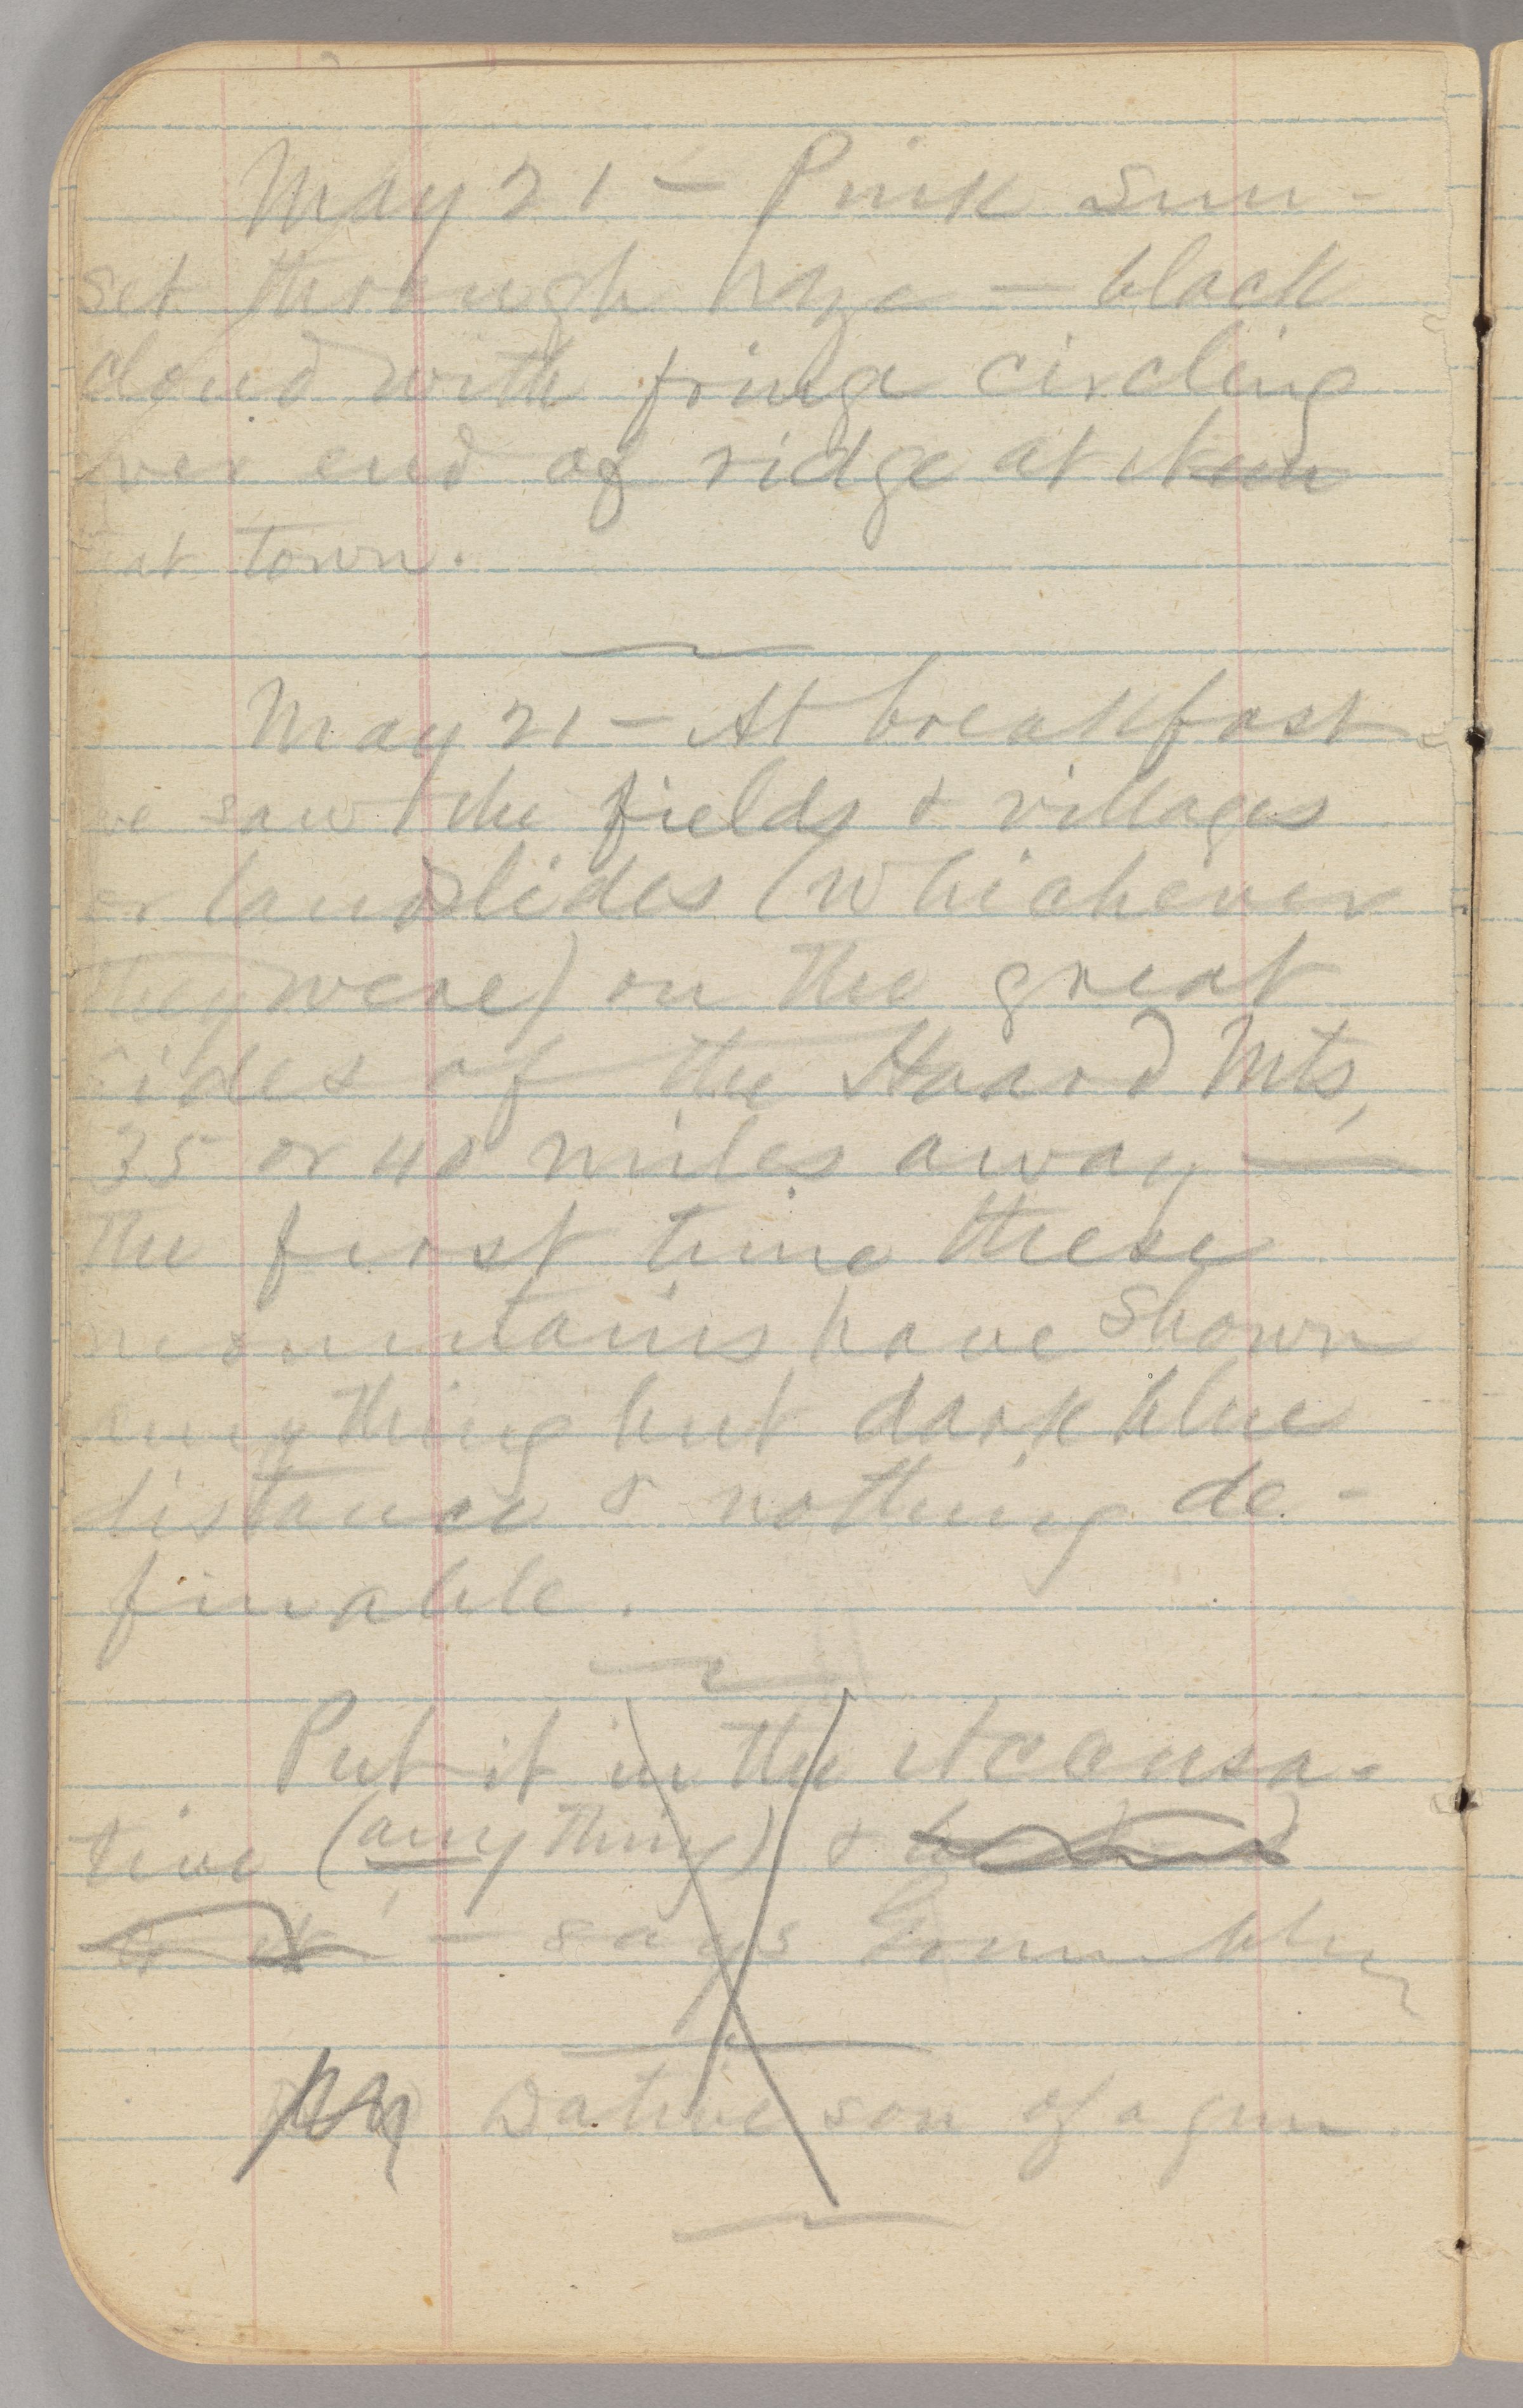 May 21 — Pink sun-
set through haze — black
cloud with fringe circling
over end of ridge at
at town.
May 21 — At breakfast
we saw the fields & villages
or landslides (whichever
they were) on the great
sides of the Haard Mts,
35 or 40 miles away —
the first time these
mountains have shown
anything but dark blue
distance & nothing de-
finable.
Put it in the Accusa-
tive (anything) &
— says Grumbly
Dative son of a gun